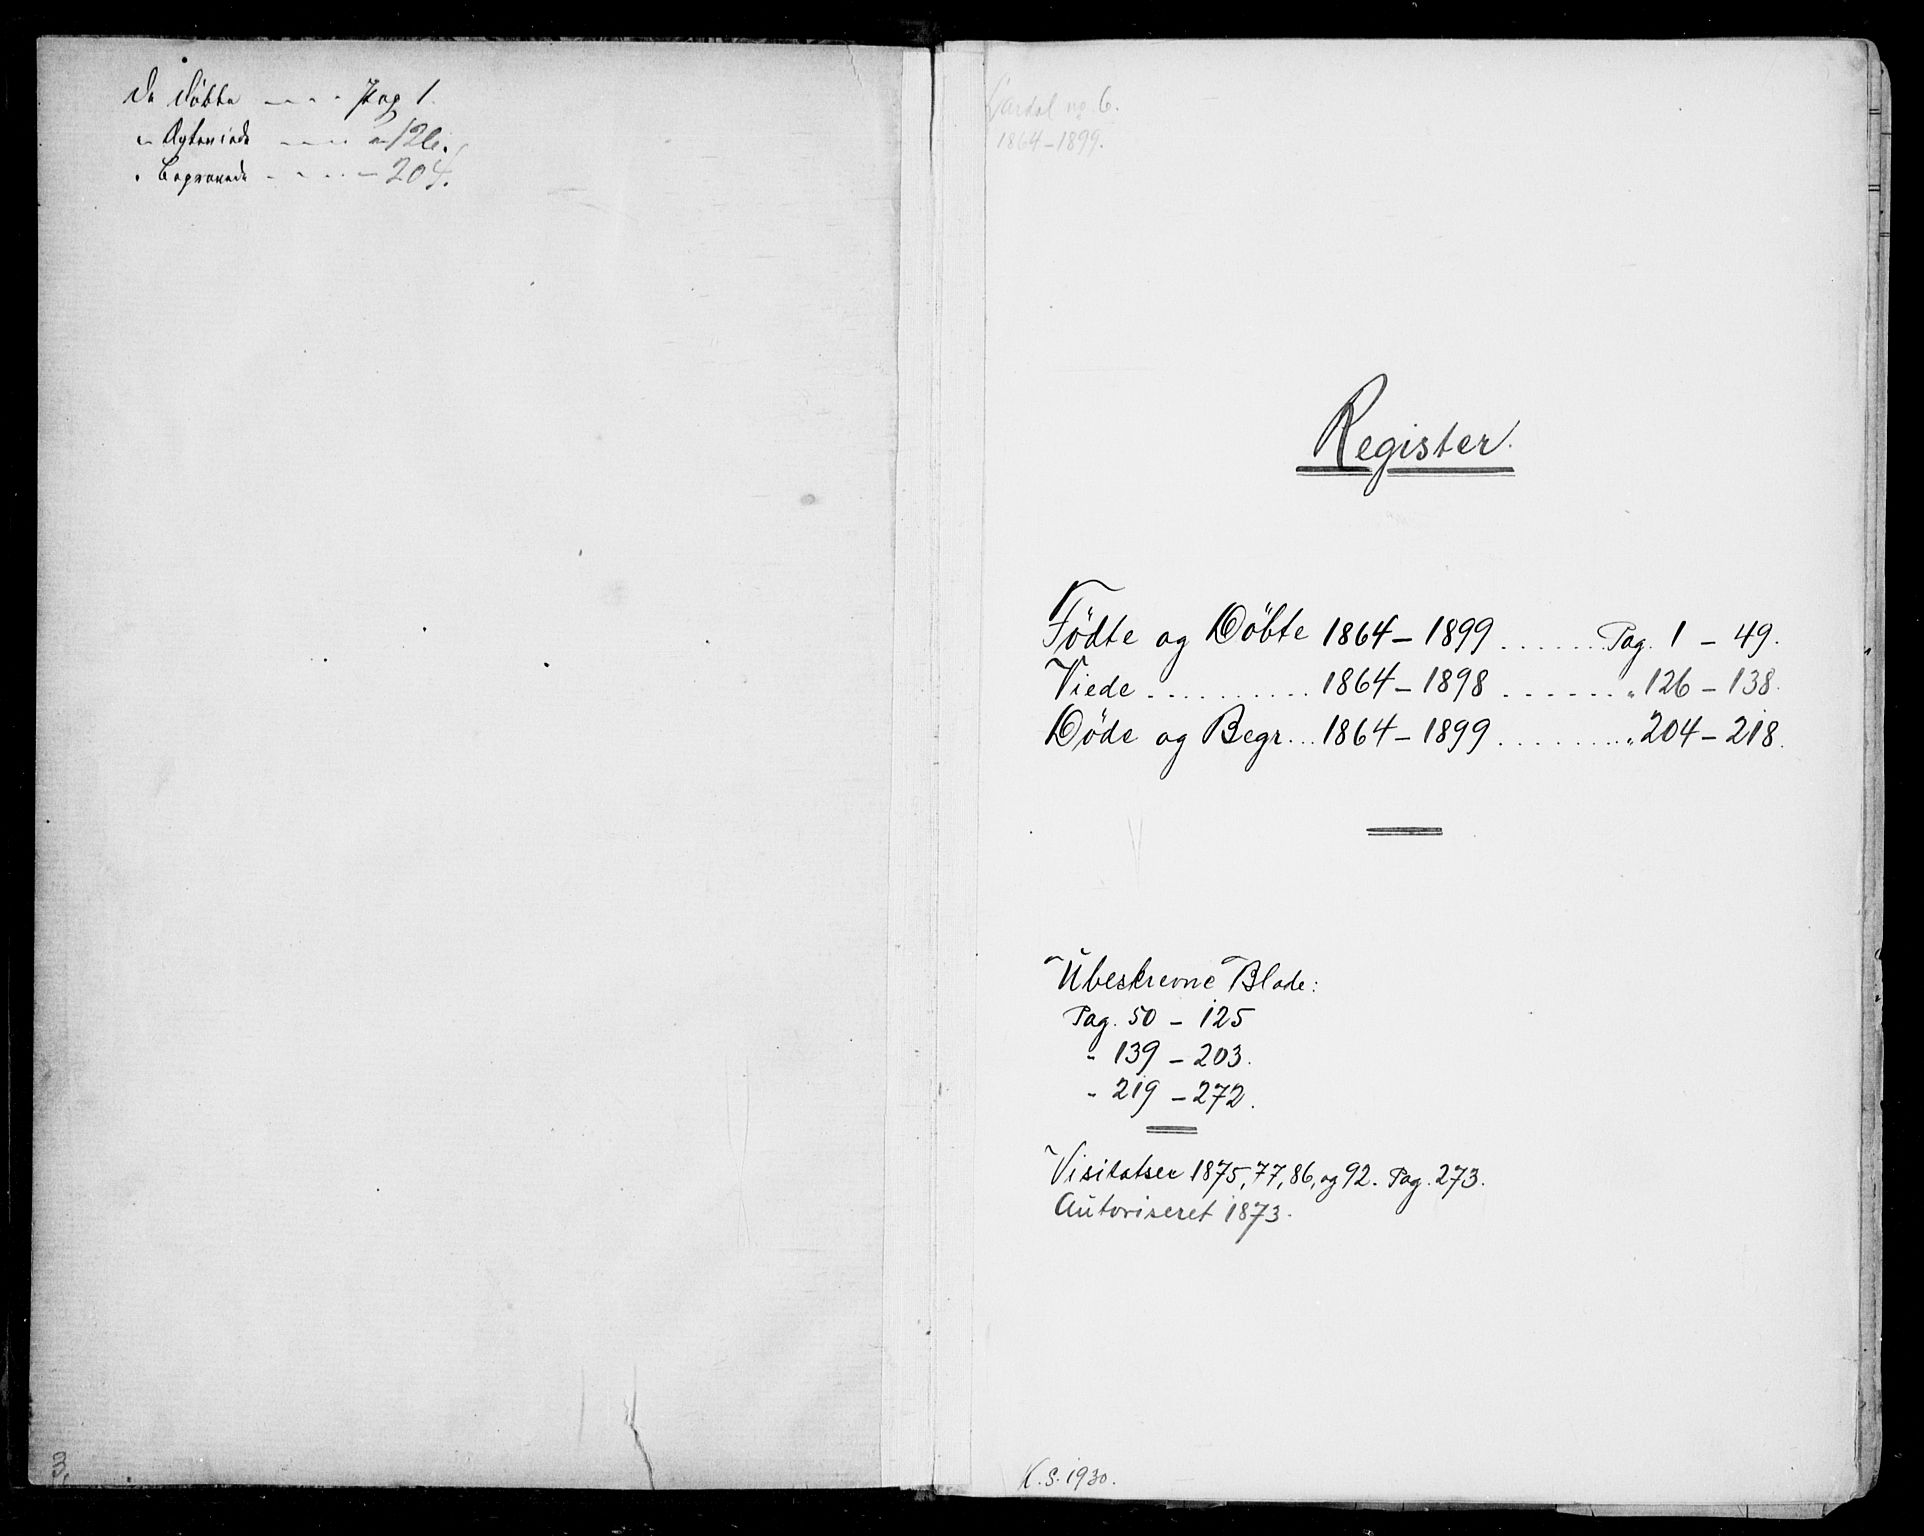 De döbte - - - - Pag 1.
" Ægteviede - - - - " 126.
" Begravede - - - - - 204.
Lardal no 6.
1864-1899.
Register.
Födte og Döbte 1864 - 1899 ....... Pag. 1 - 49.
Viede .......... 1864 - 1898 ....... " 126 - 138.
Döde og Begr... 1864 - 1899 ........ " 204 - 218.
Ubeskrevne Blade:
Pag. 50 - 125
" 139 - 203.
" 219 - 272.
Visitatser 1875, 77, 86, og 92. Pag. 273.
Autoriseret 1873.
K.S. 1930.